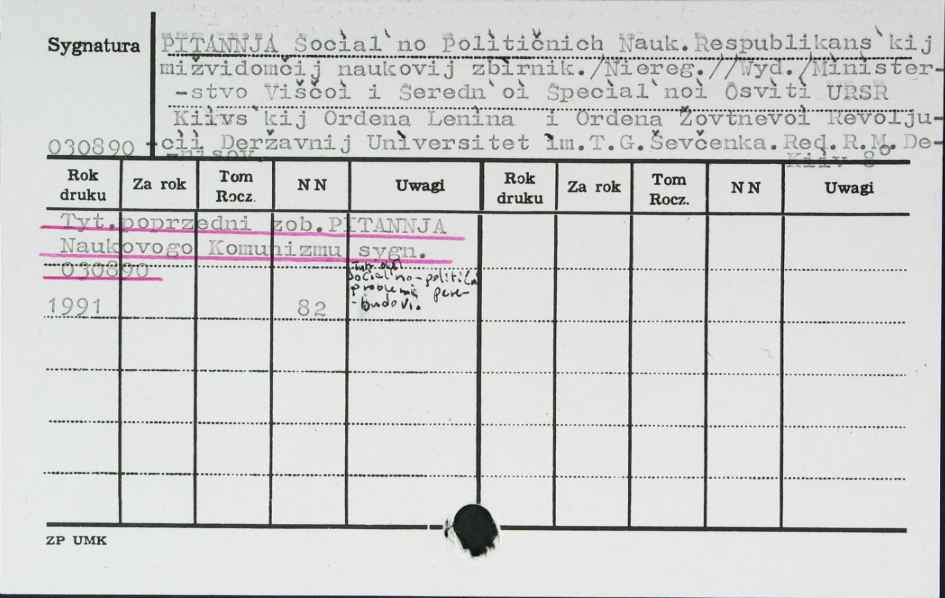 Sygnatura
PITANNJA Social`no Polìtičnich Nauk.Respublikans`kij
mižvidomčij naukovij zbìrnik./Niereg.//Wyd./Minister-
-stvo Viščoï i Seredn`oï Specìal`noï Osvìti URSR
Kiïvs`kij Ordena Lenìna i Ordena Žovtnevoï Revolju-
030890 -cìï Deržavnij Unìversitet ìm.T.G.Ševčenka.Red.R.M.De-
-nisov. Kiïv 8°
Rok druku Za rok Tom Rocz. NN Uwagi Rok druku Za rok Tom Rocz. NN Uwagi
Tyt.poprzedni zob.PITANNJA
Naukovogo Komunizmu sygn.
030890
social'no-politični
problemi pere-
-budovi.
1991 82
ZP UMK